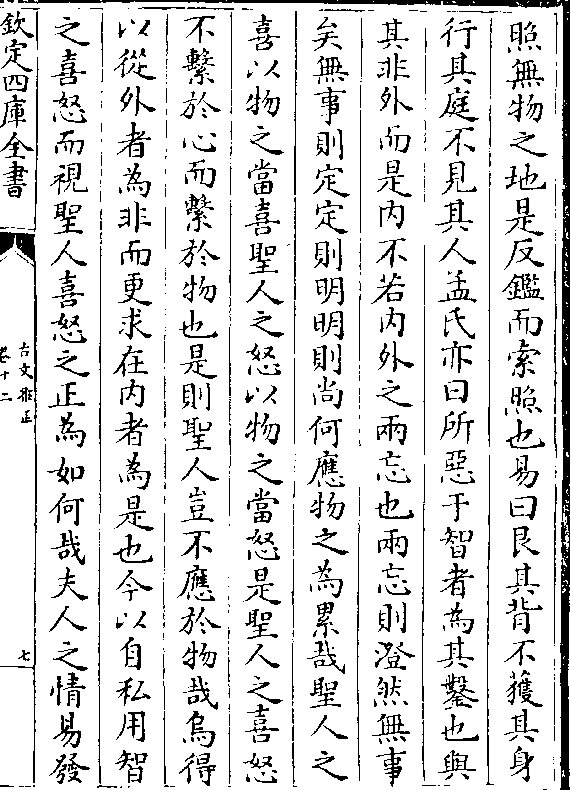 照無物之地是反鑑而索照也易曰艮其背不獲其身
行其庭不見其人孟氏亦曰所惡于智者為其鑿也與
其非外而是内不若内外之兩忘也兩忘則澄然無事
矣無事則定定則明明則尚何應物之為累哉聖人之
喜以物之當喜聖人之怒以物之當怒是聖人之喜怒
不繫於心而繫於物也是則聖人豈不應於物哉烏得
以從外者為非而更求在内者為是也今以自私用智
之喜怒而視聖人喜怒之正為如何哉夫人之情易發
欽定四庫全書
古文雅正
卷十二
七